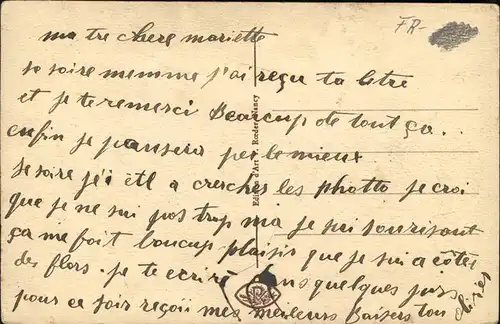 FR-
ma tre chere mariette
se soire memme j'ai reçu ta letre
et je te remerci Beaucup de tout ça..
enfin je pansera per le mieux
se soire j'ei etl a cerches les photto je croi
que je ne sui pos trup ma je sui sourisant
ça me fait boucup plaisis que je sui a côtes
des flors. je te ecrire dans quelques jurs
pour ce soir reçoii mes meileurs Baisers ton
Edition d'Art Rœder, Nancy